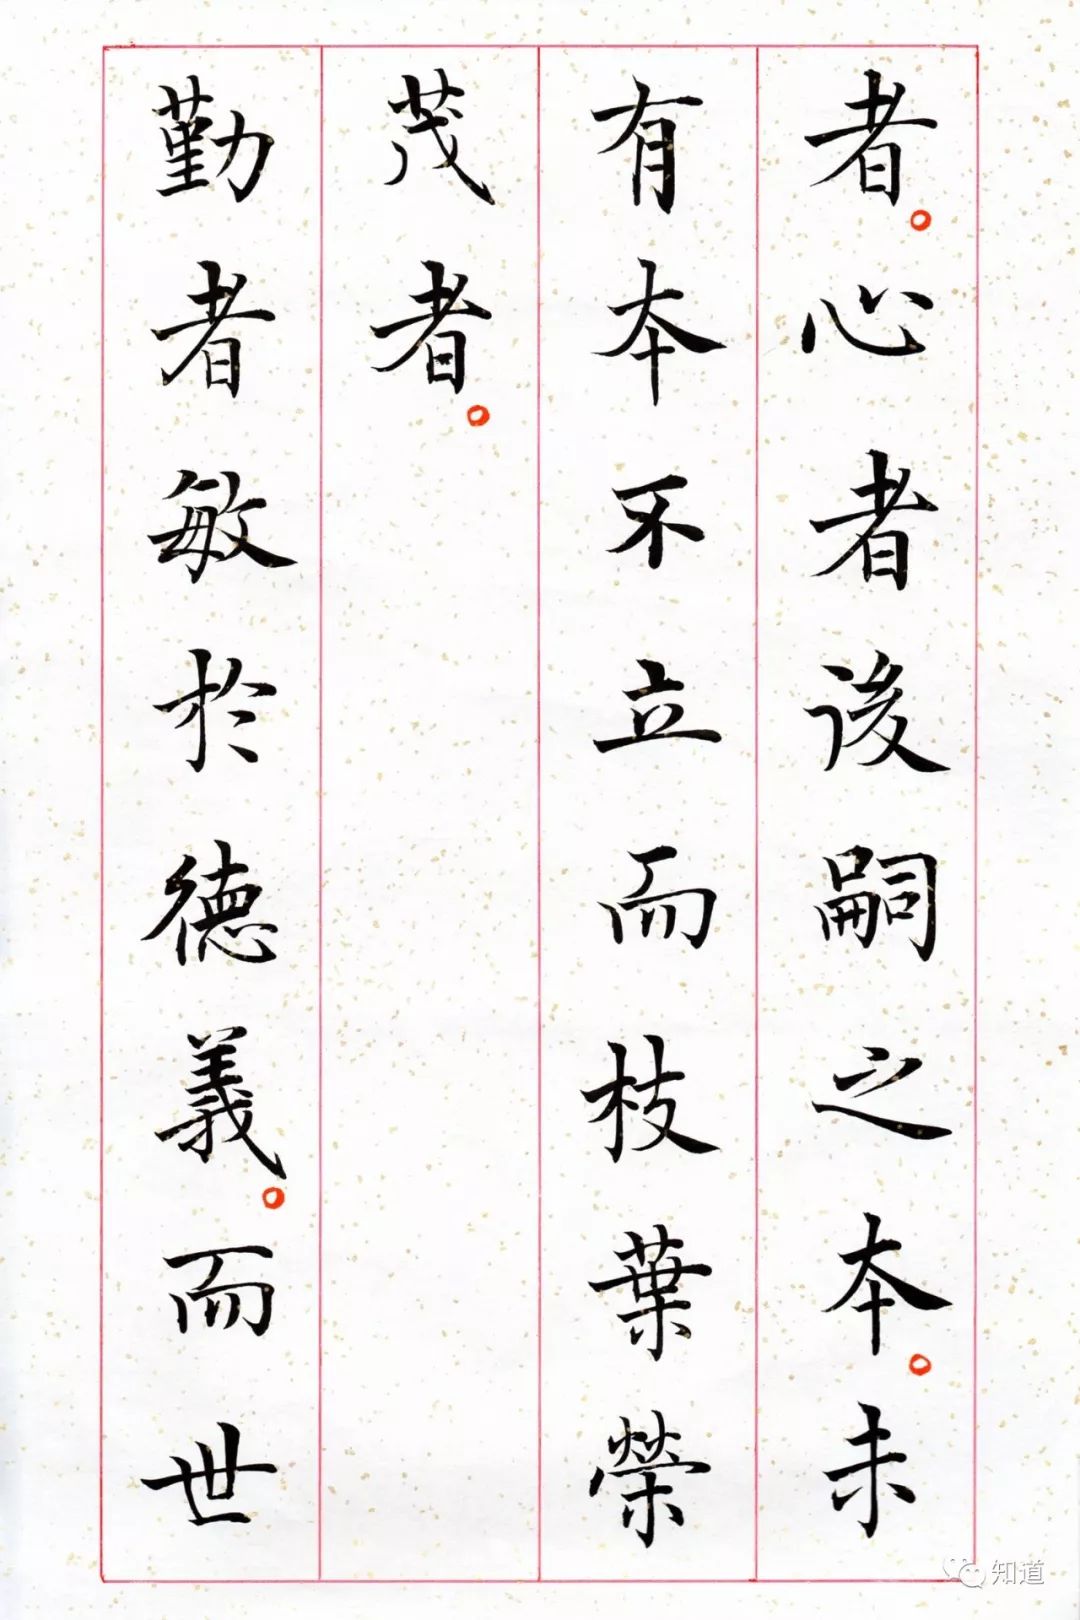 者。心者後嗣之本。未
有本不立而枝葉榮
茂者。
勤者敏於德義。而世
知道